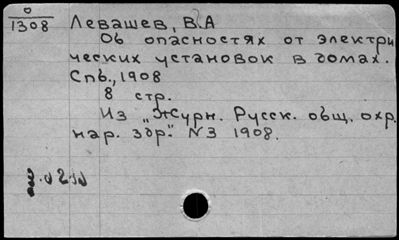 0
1308
Левашев, В.А
Об опасностях от электри
ческих установок в домах.
Спб., 1908
8 стр.
Из „Журн. Русск. общ. охр.
нар. здр." N3 1908.